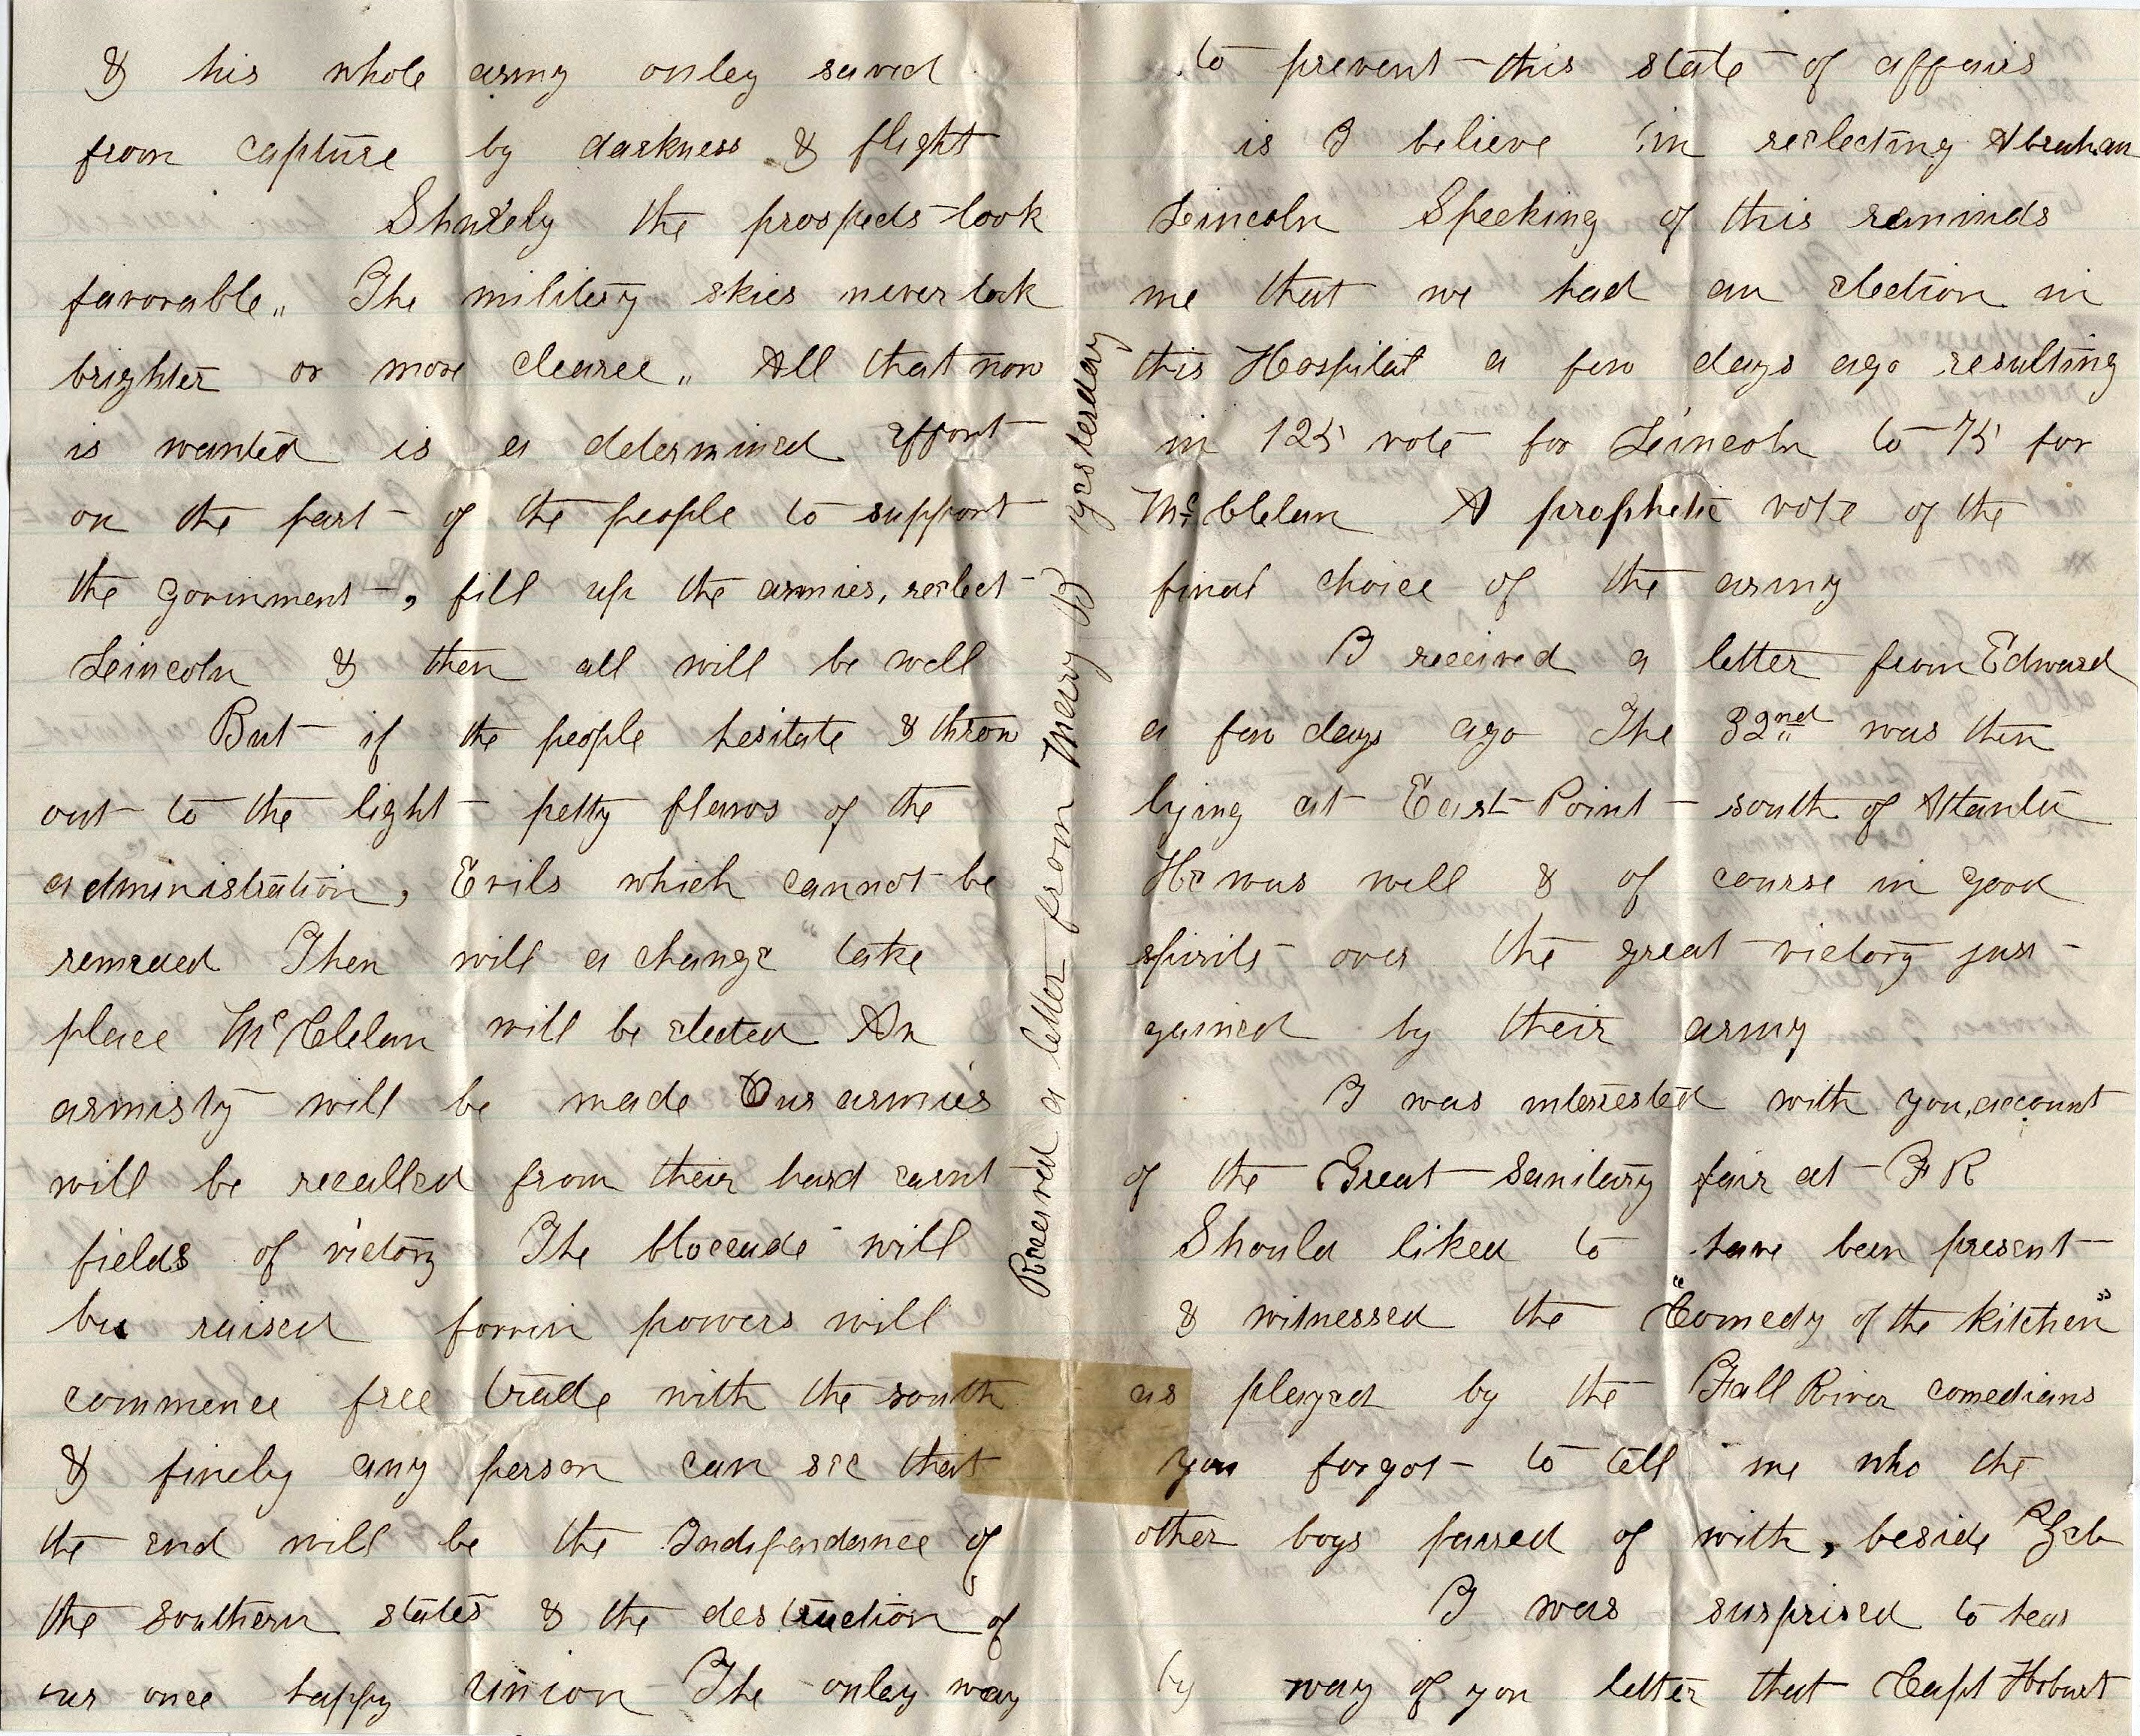 & his whole army onley saved
from capture by darkness & flight
Shurely the prospects look
favorable„ The military skies never look
brighter or more clearee„ All that now
is wanted is a determined effort
on the part of the people to support
the govinment, fill up the armies, reelect
Leincoln & then all will be well
But if the people hesitate & throw
out to the light petty flaws of the
administration, Evils which cannot be
remeded Then will a change take
place McClelan will be elected An
armisty will be made Our armies
will be recalled from their hard earnt
fields of victory The bloccade will
be raised forrin powers will
commence free trade with the south
& finely any person can see that
the end will be the Independance of
the southern states & the destruction of
our once happy union The onley way
Received a letter from Mary B yesterday
to prevent this state of affairs
is I believe in reelecting Abraham
Leincoln Speeking of this reminds
me that we had an election in
this Hospital a few days ago resulting
in 125 vote for Leincoln to 75 for
McClelan A prophetic vote of the
final choice of the army
I received a letter from Edward
a few days ago The 32nd was then
lying at East Point south of Atlanta
He was well & of course in good
spirits over the great victory just
gained by their army
I was interested with you, account
of the Great Sanitary fair at F R
Should liked to have been present
& witnessed the "Comedy of the kitchen"
as played by the Fall River comedians
you forgot to tell me who the
other boys passed of with, beside Zeb
I was surprised to hear
by way of you letter that Capt Hobart